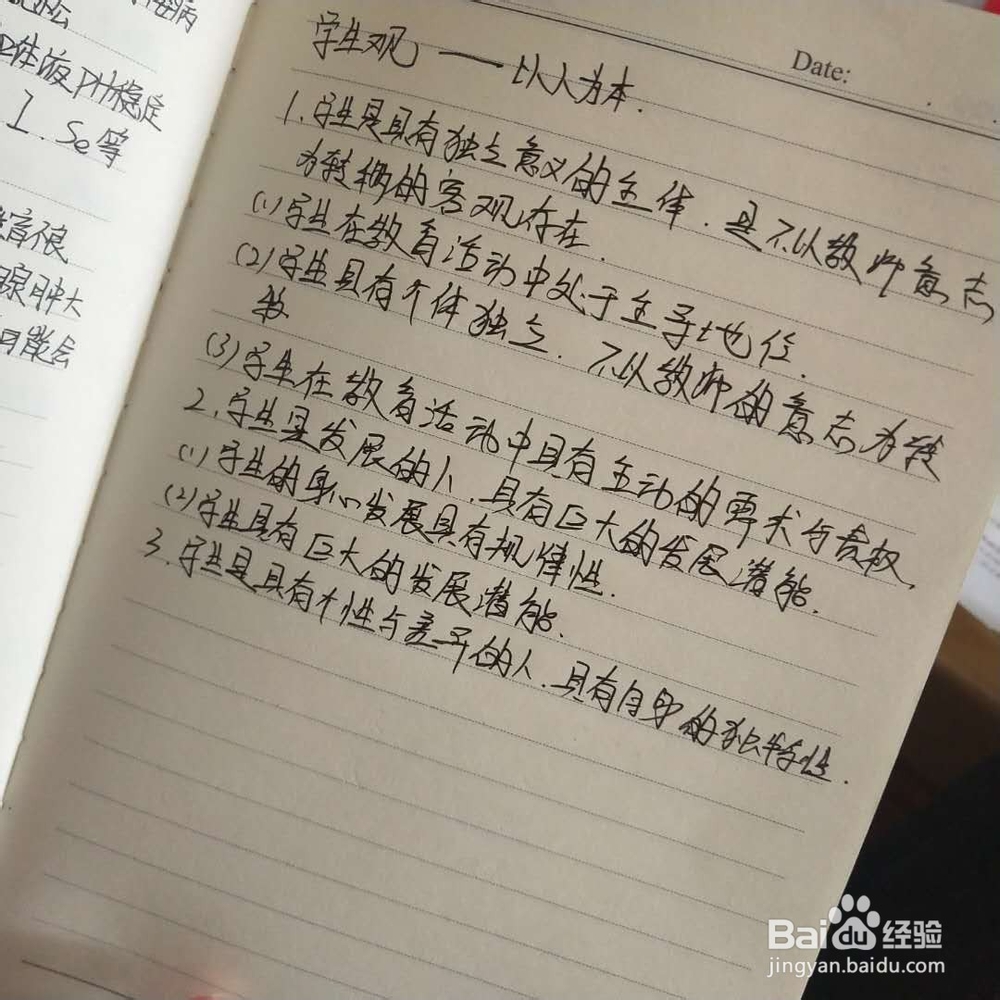 性液PH稳定
I、Se等
腺肿大
Date:
学生观——以人为本.
1.学生是具有独立意义的主体.是不以教师意志
为转移的客观存在.
(1)学生在教育活动中处于主导地位.
(2)学生具有个体独立.不以教师的意志为转
移
(3)学生在教育活动中具有主动的要求与责权.
2.学生是发展的人.具有巨大的发展潜能.
(1)学生的身心发展具有规律性.
(2)学生具有巨大的发展潜能.
3.学生是具有个性与差异的人.具有自身的独特性.
Baidu经验
jingyan.baidu.com